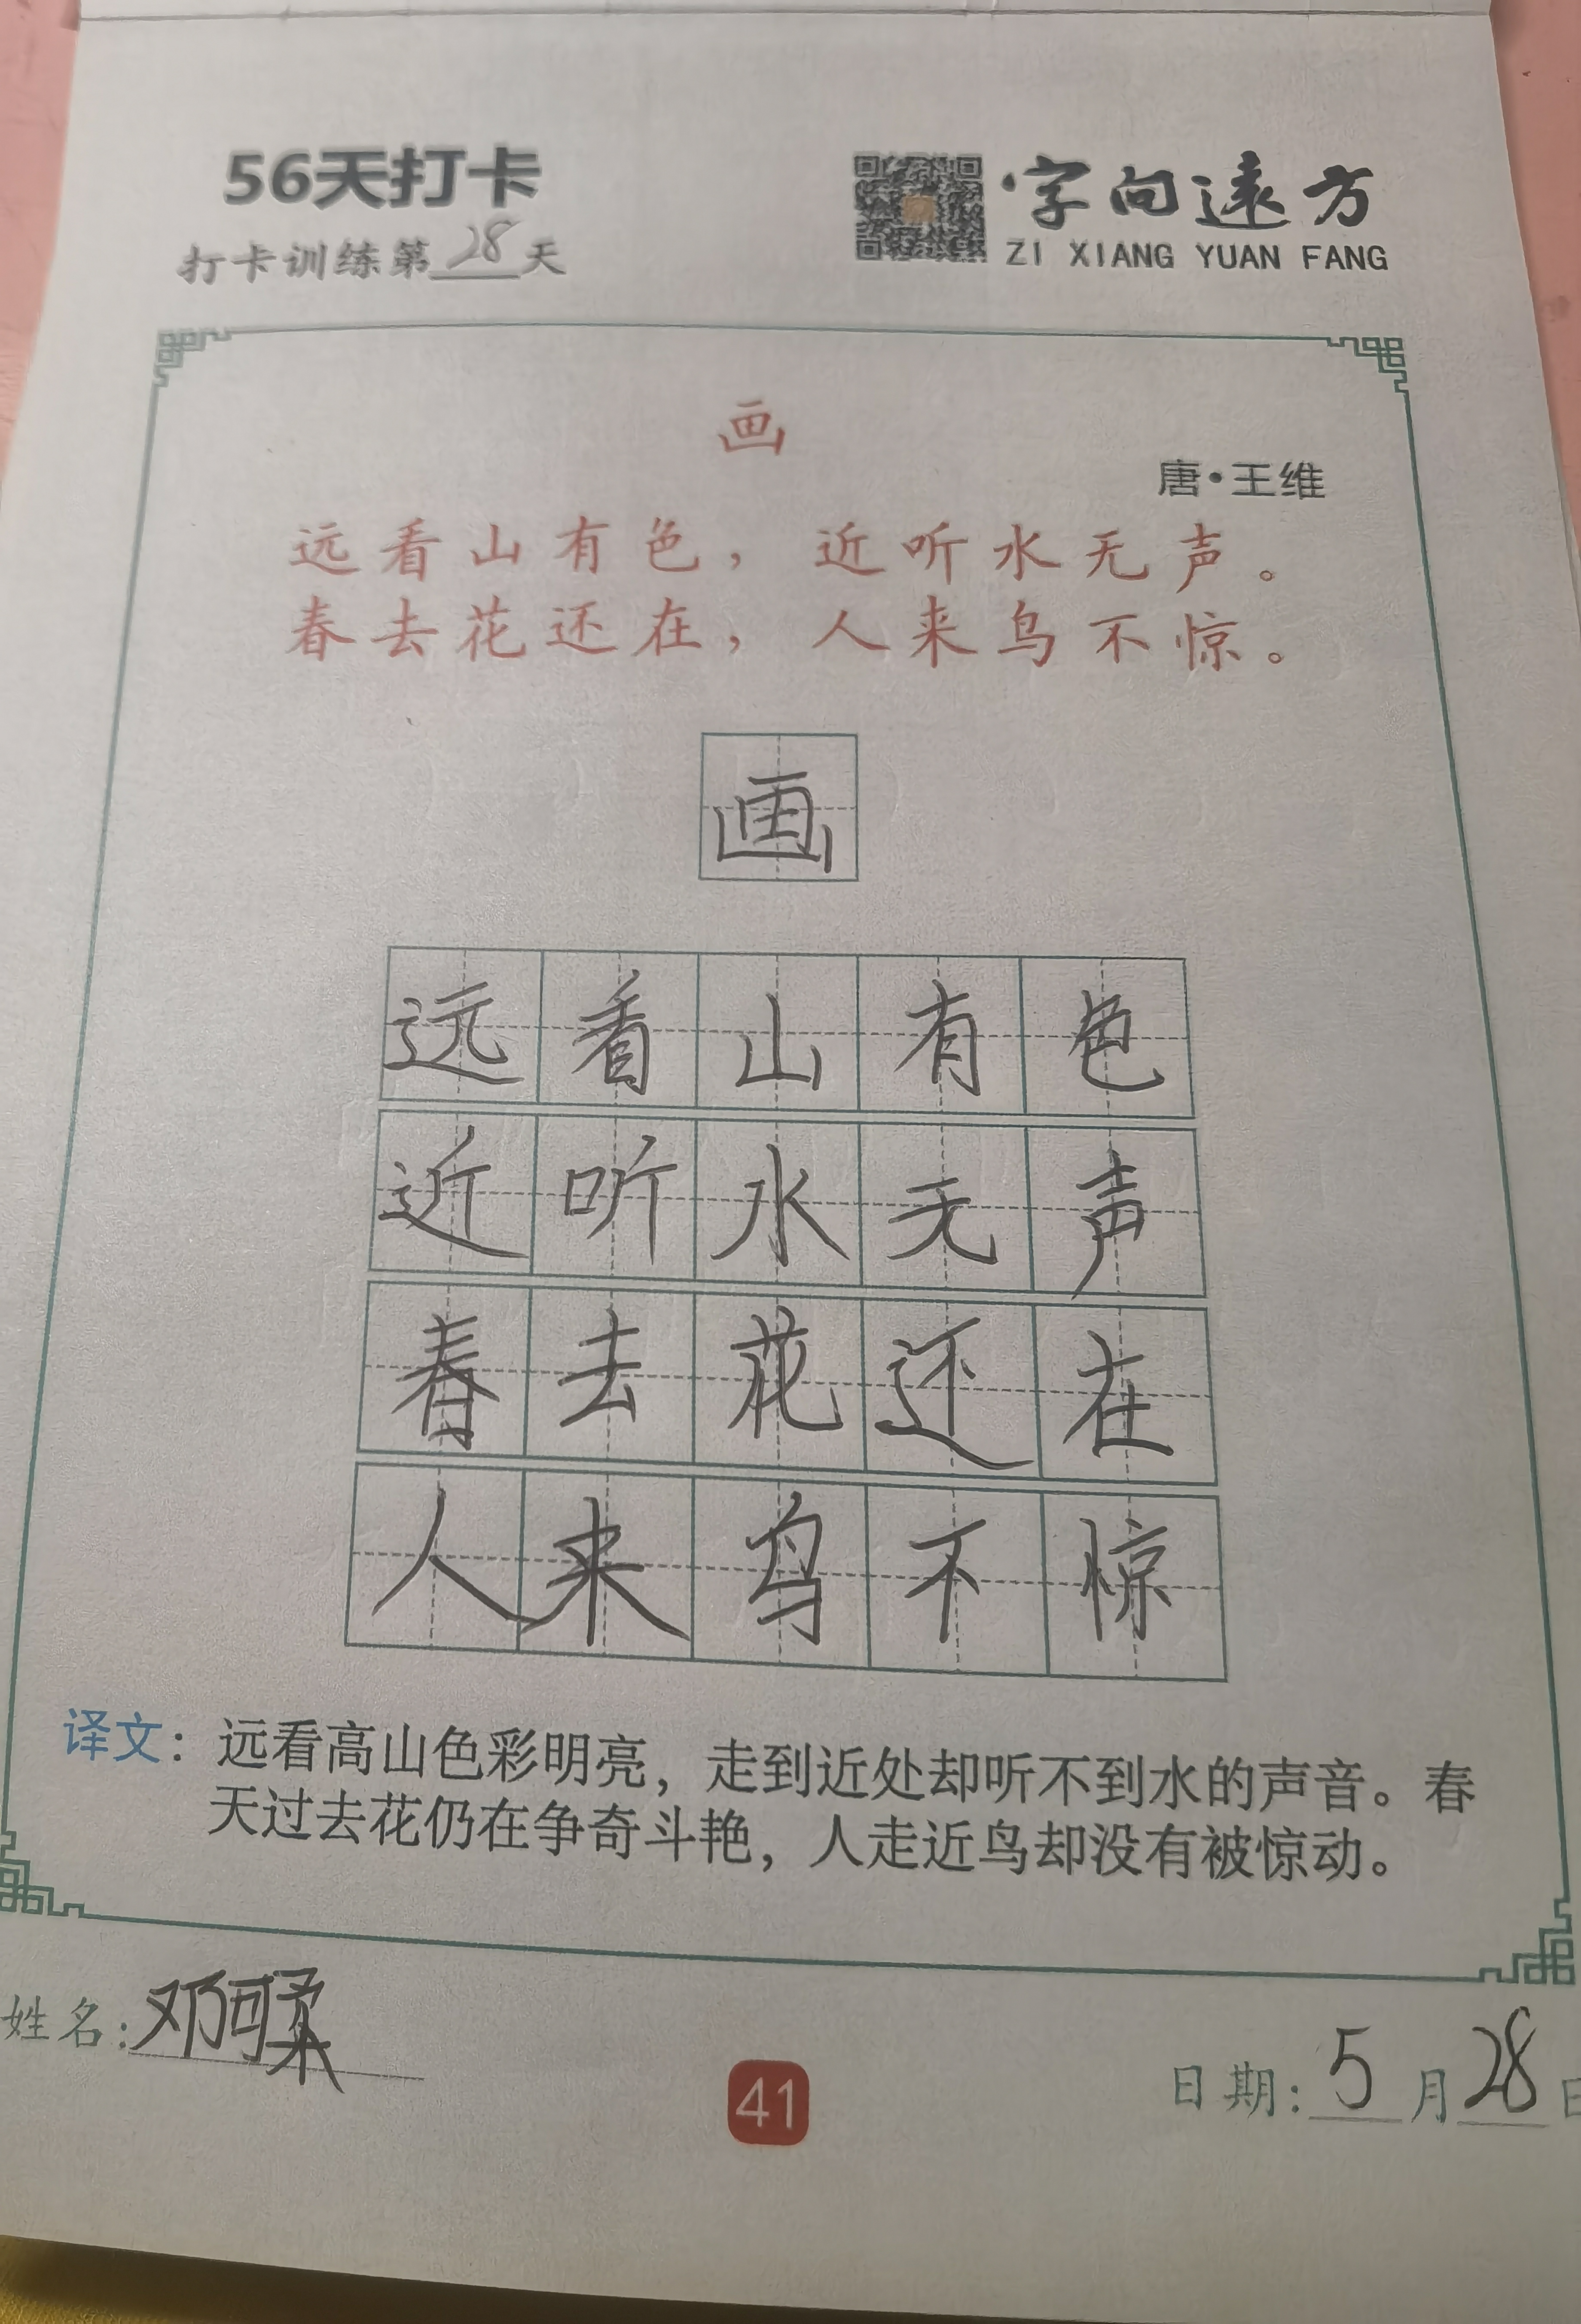 56天打卡
打卡训练第28天
字向远方
ZI XIANG YUAN FANG
画
唐·王维
远看山有色，近听水无声。
春去花还在，人来鸟不惊。
画
远看山有色
近听水无声
春去花还在
人来鸟不惊
译文：远看高山色彩明亮，走到近处却听不到水的声音。春
天过去花仍在争奇斗艳，人走近鸟却没有被惊动。
姓名：邓可柔
41
日期：5月28日